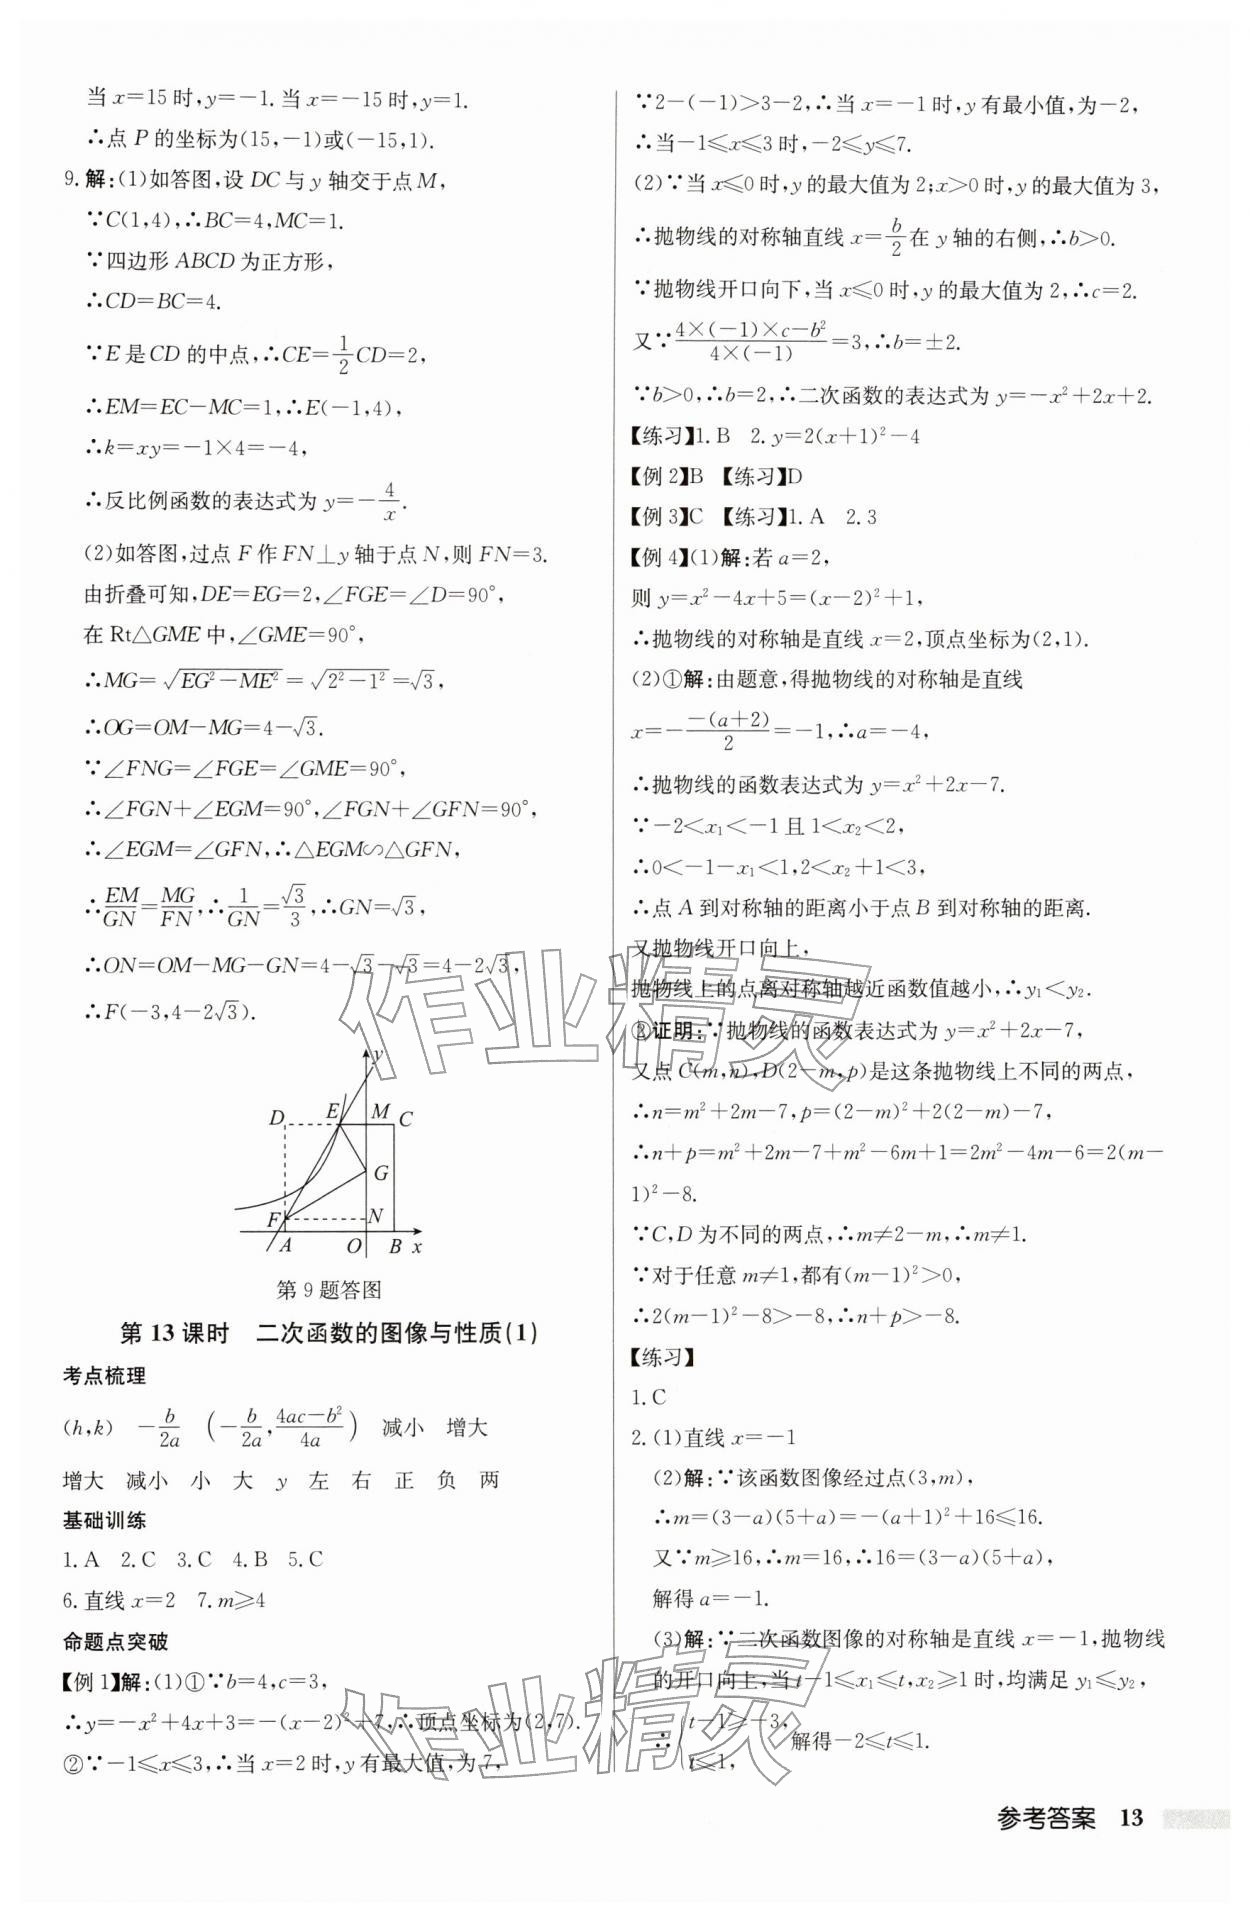 当 x=15 时,y=-1. 当 x=-15 时,y=1.
∴点 P 的坐标为(15,-1)或(-15,1).
9. 解:(1)如答图,设 DC 与 y 轴交于点 M,
∵C(1,4),∴BC=4,MC=1.
∵四边形 ABCD 为正方形,
∴CD=BC=4.
∵E 是 CD 的中点,∴CE=1/2CD=2,
∴EM=EC-MC=1,∴E(-1,4),
∴k=xy=-1×4=-4,
∴反比例函数的表达式为 y=-4/x.
(2)如答图,过点 F 作 FN⊥y 轴于点 N,则 FN=3.
由折叠可知,DE=EG=2,∠FGE=∠D=90°,
在 Rt△GME 中,∠GME=90°,
∴MG=√(EG²-ME²)=√(2²-1²)=√3,
∴OG=OM-MG=4-√3.
∵∠FNG=∠FGE=∠GME=90°,
∴∠FGN+∠EGM=90°,∠FGN+∠GFN=90°,
∴∠EGM=∠GFN,∴△EGM∽△GFN,
∴EM/GN=MG/FN,∴1/GN=√3/3,∴GN=√3,
∴ON=OM-MG-GN=4-√3-√3=4-2√3,
∴F(-3,4-2√3).
y
D E M C
G
F N
A O B x
第 9 题答图
第 13 课时 二次函数的图像与性质(1)
考点梳理
(h,k) -b/2a (-b/2a,(4ac-b²)/4a) 减小 增大
增大 减小 小 大 y 左 右 正 负 两
基础训练
1. A 2. C 3. C 4. B 5. C
6. 直线 x=2 7. m≥4
命题点突破
【例 1】解:(1)①∵b=4,c=3,
∴y=-x²+4x+3=-(x-2)²+7,∴顶点坐标为(2,7).
②∵-1≤x≤3,∴当 x=2 时,y 有最大值,为 7,
∵2-(-1)>3-2,∴当 x=-1 时,y 有最小值,为-2,
∴当-1≤x≤3 时,-2≤y≤7.
(2)∵当 x≤0 时,y 的最大值为 2;x>0 时,y 的最大值为 3,
∴抛物线的对称轴直线 x=b/2 在 y 轴的右侧,∴b>0.
∵抛物线开口向下,当 x≤0 时,y 的最大值为 2,∴c=2.
又∵(4×(-1)×c-b²)/(4×(-1))=3,∴b=±2.
∵b>0,∴b=2,∴二次函数的表达式为 y=-x²+2x+2.
【练习】1. B 2. y=2(x+1)²-4
【例 2】B 【练习】D
【例 3】C 【练习】1. A 2. 3
【例 4】(1)解:若 a=2,
则 y=x²-4x+5=(x-2)²+1,
∴抛物线的对称轴是直线 x=2,顶点坐标为(2,1).
(2)①解:由题意,得抛物线的对称轴是直线
x=-(-(a+2))/2=-1,∴a=-4,
∴抛物线的函数表达式为 y=x²+2x-7.
∵-2<x₁<-1 且 1<x₂<2,
∴0<-1-x₁<1,2<x₂+1<3,
∴点 A 到对称轴的距离小于点 B 到对称轴的距离.
又抛物线开口向上,
抛物线上的点离对称轴越近函数值越小,∴y₁<y₂.
②证明:∵抛物线的函数表达式为 y=x²+2x-7,
又点 C(m,n),D(2-m,p)是这条抛物线上不同的两点,
∴n=m²+2m-7,p=(2-m)²+2(2-m)-7,
∴n+p=m²+2m-7+m²-6m+1=2m²-4m-6=2(m-
1)²-8.
∵C,D 为不同的两点,∴m≠2-m,∴m≠1.
∵对于任意 m≠1,都有(m-1)²>0,
∴2(m-1)²-8>-8,∴n+p>-8.
【练习】
1. C
2. (1)直线 x=-1
(2)解:∵该函数图像经过点(3,m),
∴m=(3-a)(5+a)=-(a+1)²+16≤16.
又∵m≥16,∴m=16,∴16=(3-a)(5+a),
解得 a=-1.
(3)解:∵二次函数图像的对称轴是直线 x=-1,抛物线
的开口向上,当 t-1≤x₁≤t,x₂≥1 时,均满足 y₁≤y₂,
∴{t-1≥-3, t≤1, 解得-2≤t≤1.
参考答案 13
作业精灵
作业精灵